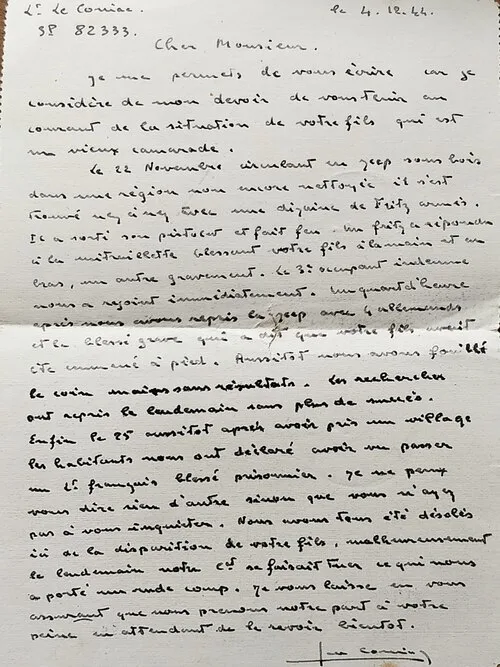 Lt Le Corniac. le 4.12.44.
SP 82333.
Cher Monsieur.
Je me permets de vous écrire car je
considère de mon devoir de vous tenir au
courant de la situation de votre fils qui est
un vieux camarade.
Le 22 Novembre circulant en jeep sous bois
dans une région non encore nettoyée il s'est
trouvé nez à nez avec une dizaine de Fritz armés.
Il a sorti son pistolet et fait feu. Un fritz a répondu
à la mitraillette blessant votre fils à la main et au
bras, un autre gravement. Le 3e occupant indemne
nous a rejoint immédiatement. Un quart d'heure
après nous avons repris la jeep avec 4 allemands
et le blessé grave qui a dit que votre fils avait
été emmené à pied. Aussitot nous avons fouillé
le coin mais sans résultats. Les recherches
ont repris le lendemain sans plus de succès.
Enfin le 25 aussitot après avoir pris un village
les habitants nous ont déclaré avoir vu passer
un Lt français blessé prisonnier. Je ne peux
vous dire rien d'autre sinon que vous n'ayez
pas à vous inquiéter. Nous avons tous été désolés
ici de la disparition de votre fils, malheureusement
le lendemain notre Ct se faisait tuer ce qui nous
a porté un rude coup. Je vous laisse en vous
assurant que nous prenons notre part à votre
peine en attendant de le revoir bientot.